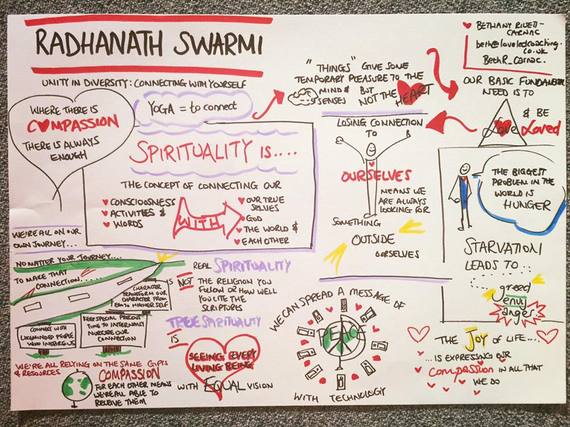 RADHANATH SWARMI
UNITY IN DIVERSITY: CONNECTING WITH YOURSELF
BETHANY RIVETT-
CARNAC
beth@loveledcoaching.
co.uk
Beth R_Carnac.
WHERE THERE IS
COMPASSION
THERE IS ALWAYS
ENOUGH
YOGA = to connect
"THINGS" GIVE SOME
TEMPORARY PLEASURE TO THE
MIND & BUT
SENSES NOT THE HEART
OUR BASIC FUNDAMENTAL
NEED IS TO
Love & BE
Loved
SPIRITUALITY IS....
THE CONCEPT OF CONNECTING OUR
CONSCIOUSNESS
ACTIVITIES &
WORDS
WITH
OUR TRUE
SELVES
GOD
THE WORLD &
EACH OTHER
LOSING CONNECTION
TO
OURSELVES
MEANS WE
ARE ALWAYS
LOOKING FOR
SOMETHING
OUTSIDE
OURSELVES
THE BIGGEST
PROBLEM IN THE
WORLD IS
HUNGER
STARVATION
LEADS TO...
greed
envy
anger
WE'RE ALL ON OUR
OWN JOURNEY...
NO MATTER YOUR JOURNEY....
TO MAKE THAT
CONNECTION....
CHARACTER
TRANSFORM OUR
CHARACTER FROM
KEEP SPECIAL PERSONAL
TIME TO INTERNALLY
NURTURE OUR
CONNECTION
CONNECT WITH
LIKEMINDED PEOPLE
WHO
WE'RE ALL RELYING ON THE SAME GIFTS
& RESOURCES
COMPASSION
FOR EACH OTHER MEANS
WE'RE ALL ABLE TO
RECEIVE THEM
REAL SPIRITUALITY
IS NOT THE RELIGION YOU
FOLLOW OR HOW WELL
YOU CITE THE
SCRIPTURES
TRUE SPIRITUALITY
IS
SEEING EVERY
LIVING BEING
WITH EQUAL VISION
WE CAN SPREAD A MESSAGE OF
PEACE
WITH TECHNOLOGY
THE JOY OF LIFE...
... IS EXPRESSING OUR
compassion IN ALL THAT
WE DO